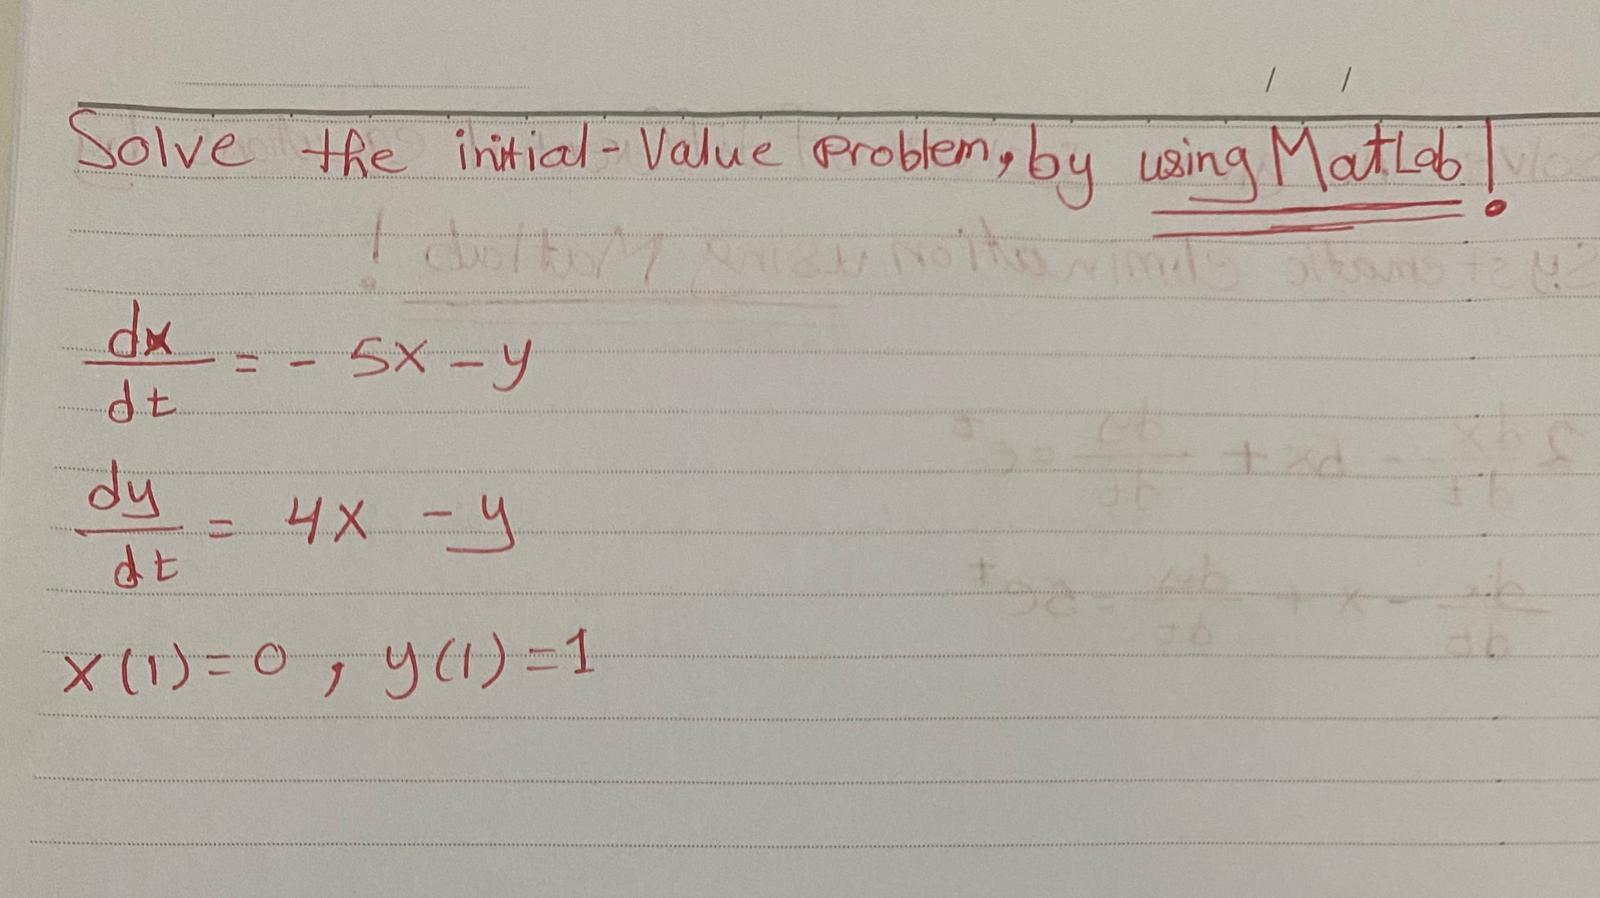 Solve the initial-Value problem, by using MatLab!
dx/dt = - 5x - y
dy/dt = 4x - y
x(1)=0, y(1)=1